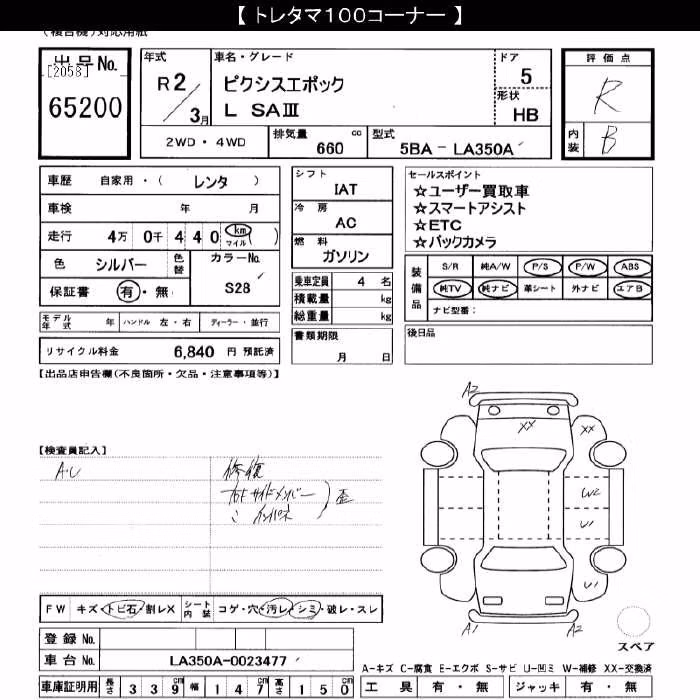 【 トレタマ100コーナー 】
(複合機)対応用紙
出品No.
[2058]
65200
年式
R 2/3月
車名・グレード
ピクシスエポック
L SAⅢ
ドア
5
形状
HB
評価点
R
内装
B
2WD・4WD
排気量 660 cc
型式 5BA-LA350A
車歴 自家用・( レンタ )
車検 年 月
走行 4万 0千 4 4 0 km マイル ( )
色 シルバー 色替
カラーNo.
S28
保証書 有・無
シフト
IAT
冷房
AC
燃料
ガソリン
乗車定員 4 名
積載量 kg
総重量 kg
セールスポイント
☆ユーザー買取車
☆スマートアシスト
☆ETC
☆バックカメラ
装備品
S/R 純A/W P/S P/W ABS
純TV 純ナビ 革シート 外ナビ エアB
ナビ型番:
モデル年式 年 ハンドル 左・右 ディーラー・並行
リサイクル料金 6,840 円 預託済
書類期限
月 日
後日品
【出品店申告欄(不良箇所・欠品・注意事項等)】
【検査員記入】
A・U
修復
右F サイドメンバー
〃 インパネ
歪
A2
XX
XX
W2
U1
U1
A1
A2
スペア
FW キズ・トビ石・割レX
シート内装 コゲ・穴・汚レ・シミ・破レ・スレ
登録No.
車台No. LA350A-0023477
車庫証明用 長さ 339cm 幅 147cm 高さ 150cm
A-キズ C-腐食 E-エクボ S-サビ U-凹ミ W-補修 XX-交換済
工具 有・無 ジャッキ 有・無